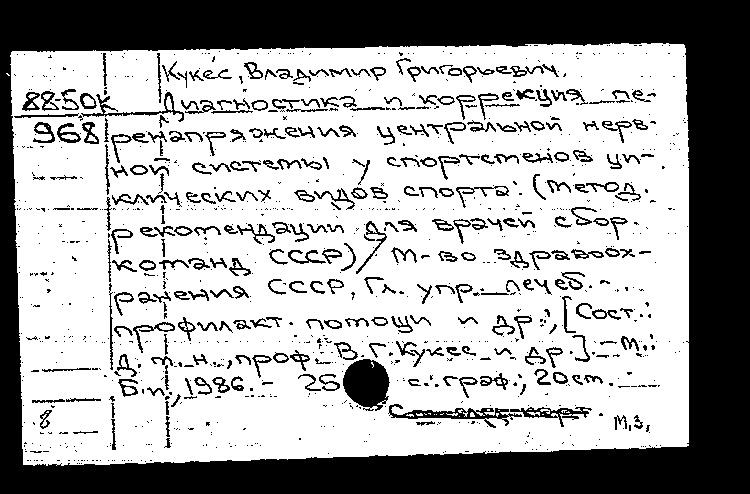 Кукес, Владимир Григорьевич.
88-50к Диагностика и коррекция пе-
968 ренапряжения центральной нерв-
ной системы у спортсменов ци-
клических видов спорта: (Метод.
рекомендации для врачей сбор.
команд СССР) / М-во здравоох-
ранения СССР, Гл. упр. лечеб.-
профилакт. помощи и др.; [Сост.:
д. м. н., проф. В. Г. Кукес и др.]. - М.:
Б. и., 1986. - 25 с.: граф.; 20 см.
8 М, З,